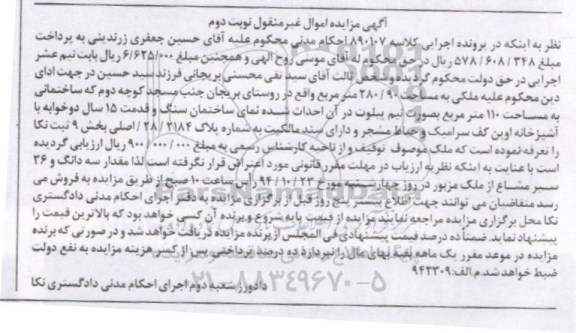 آگهی مزایده اموال غیرمنقول نوبت دوم
نظر به اینکه در پرونده اجرایی کلاسه ۸۹۰۱۰۷ احکام مدنی محکوم علیه آقای حسین جعفری زرندینی به پرداخت
مبلغ ۳۴۸ / ۶۰۸ / ۵۷۸ ریال در حق محکوم له آقای موسی روح الهی و همچنین مبلغ ۶/۶۲۵/۰۰۰ ریال بابت نیم عشر
اجرایی در حق دولت محکوم گردیده و شخص ثالث آقای سید نقی محسنی پریجائی فرزند سید حسین در جهت ادای
دین محکوم علیه ملکی به مساحت ۲۸۰/۹۰ متر مربع واقع در روستای پریجان جنب مسجد کوچه دوم که ساختمانی
به مساحت ۱۱۰ متر مربع بصورت نیم پیلوت در آن احداث شده نمای ساختمان سنگ و قدمت ۱۵ سال دوخوابه با
آشپزخانه اوپن کف سرامیک و حیاط مشجر و دارای سند مالکیت به شماره پلاک ۲۱۸۴ / ۲۸ / اصلی بخش ۹ ثبت نکا
را تعرفه نموده است که ملک موصوف توقیف و از ناحیه کارشناس رسمی به مبلغ ۹۰۰/۰۰۰/۰۰۰ ریال ارزیابی گردیده
است با عنایت به اینکه نظریه ارزیاب در مهلت مقرر قانونی مورد اعتراض قرار نگرفته است لذا مقدار سه دانگ و ۳۶
سیر مشاع از ملک مزبور در روز چهارشنبه مورخ ۹۴/۱۰/۲۳ ساعت ۱۰ صبح از طریق مزایده به فروش می
رسد متقاضیان می توانند جهت اطلاع بیشتر پنج روز قبل از برگزاری مزایده به دفتر اجرای احکام مدنی دادگستری
نکا محل برگزاری مزایده مراجعه نمایند مزایده از قیمت پایه شروع و برنده آن کسی خواهد بود که بالاترین قیمت را
پیشنهاد نماید. ضمناً ده درصد قیمت پیشنهادی فی المجلس از برنده مزایده دریافت خواهد شد و در صورتی که برنده
مزایده در موعد مقرر یک ماهه بقیه بهای مال را نپردازد ده درصد پرداختی پس از کسر هزینه مزایده به نفع دولت
ضبط خواهد شد.م.الف: ۹۴۲۳۰۹
۰۲۱-۸۸۳۴۹۶۷۰-۵
دادورز شعبه دوم اجرای احکام مدنی دادگستری نکا